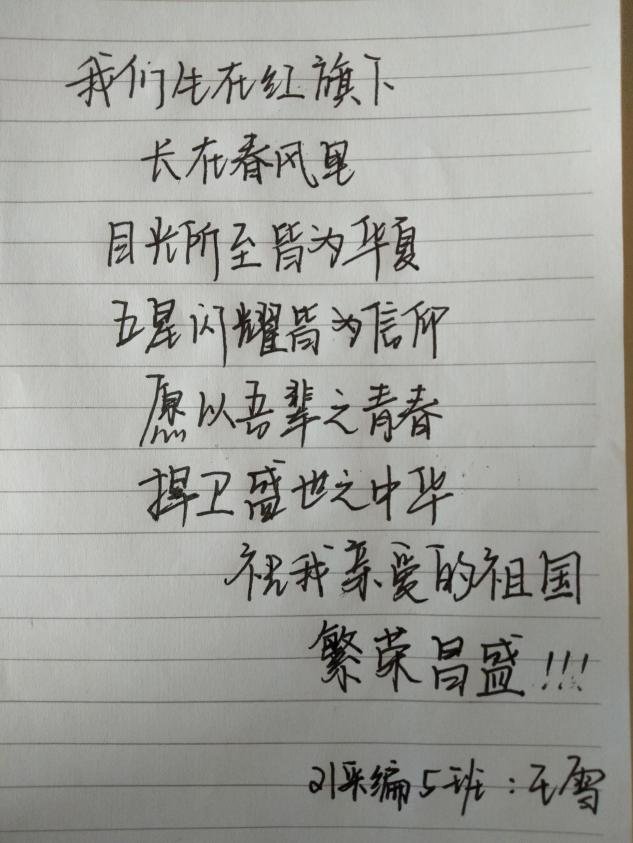 我们生在红旗下
长在春风里
目光所至皆为华夏
五星闪耀皆为信仰
愿以吾辈之青春
捍卫盛世之中华
祝我亲爱的祖国
繁荣昌盛!!!
21采编5班:王雪